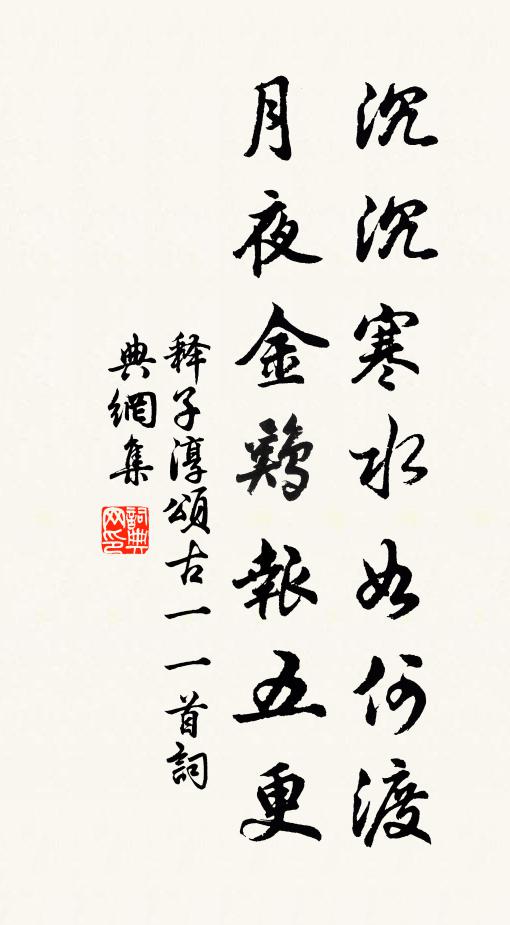 沉沉寒水如何渡
月夜金鷄報五更
釋子淳頌古一一首詞
典網集
詞典
网印